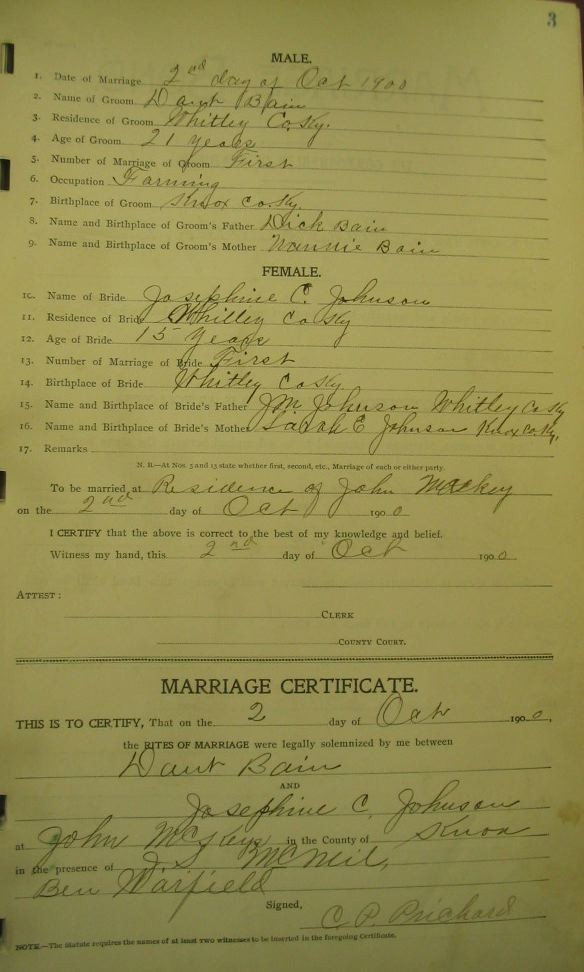 3
MALE.
1. Date of Marriage 2nd day of Oct 1900
2. Name of Groom Daut Bain
3. Residence of Groom Whitley Co, Ky.
4. Age of Groom 21 years
5. Number of Marriage of Groom First
6. Occupation Farming
7. Birthplace of Groom Knox Co. Ky.
8. Name and Birthplace of Groom's Father Dick Bain
9. Name and Birthplace of Groom's Mother Nannie Bain
FEMALE.
10. Name of Bride Josephine C. Johnson
11. Residence of Bride Whitley Co Ky
12. Age of Bride 15 years
13. Number of Marriage of Bride First
14. Birthplace of Bride Whitley Co Ky.
15. Name and Birthplace of Bride's Father J.M. Johnson Whitley Co Ky
16. Name and Birthplace of Bride's Mother Sarah E Johnson Knox Co. Ky.
17. Remarks
N. B.—At Nos. 5 and 13 state whether first, second, etc., Marriage of each or either party.
To be married at Residence of John
on the 2nd day of Oct 1900
I CERTIFY that the above is correct to the best of my knowledge and belief.
Witness my hand, this 2nd day of Oct 1900
ATTEST:
CLERK
COUNTY COURT.
MARRIAGE CERTIFICATE.
THIS IS TO CERTIFY, That on the 2 day of Oct 1900,
the RITES OF MARRIAGE were legally solemnized by me between
Daut Bain
AND
Josephine C. Johnson
at John in the County of Knox
in the presence of J. S. McNeil,
Ben Warfield
Signed, C. P. Prichard
NOTE.—The Statute requires the names of at least TWO witnesses to be inserted in the foregoing Certificate.